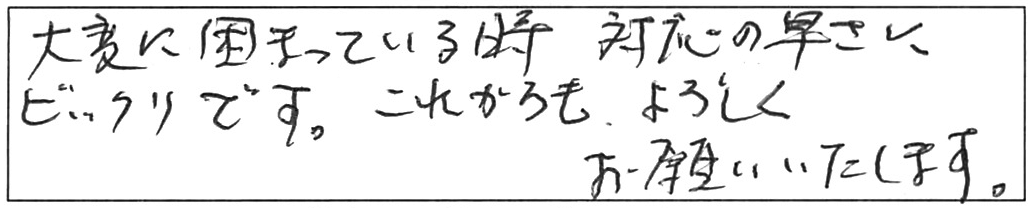 大変に困まっている時 対応の早さに
ビックリです。これからも、よろしく
お願いいたします。